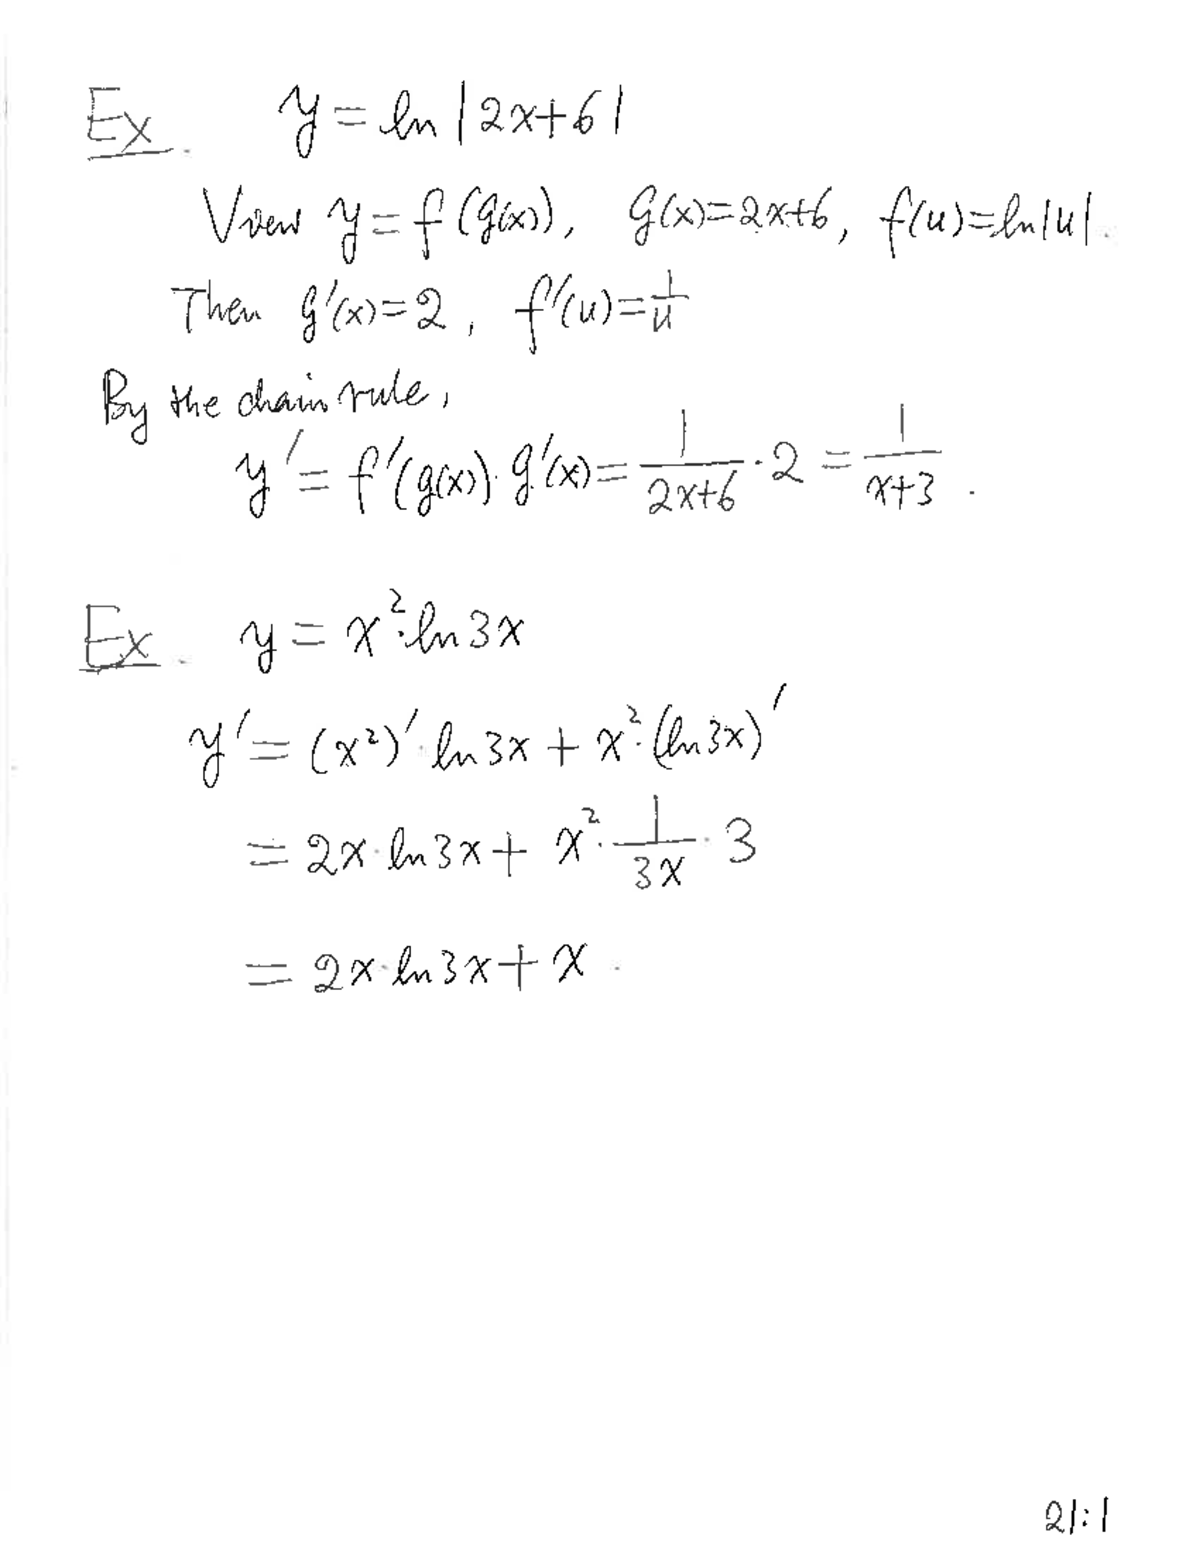 Ex. y = ln |2x+6|
View y = f(g(x)), g(x)=2x+6, f(u)=ln|u|.
Then g'(x)=2, f'(u)=1/u
By the chain rule,
y' = f'(g(x))·g'(x) = 1/(2x+6) · 2 = 1/(x+3).
Ex. y = x²·ln3x
y' = (x²)'·ln3x + x²·(ln3x)'
= 2x·ln3x + x²·1/(3x)·3
= 2x·ln3x + x.
21:1